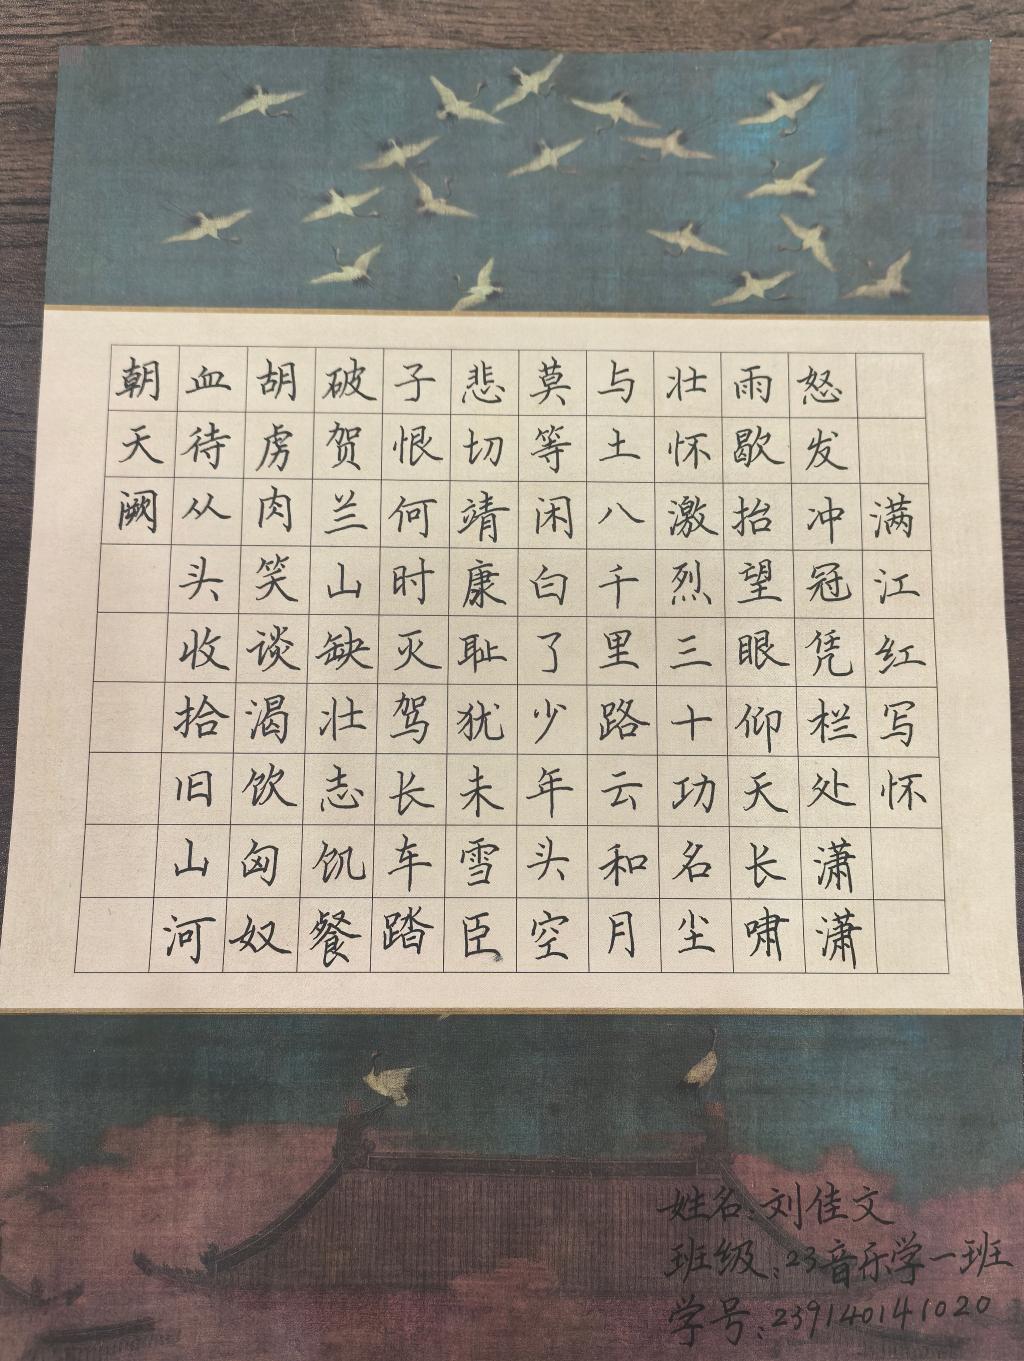 满江红写怀
怒发冲冠凭栏处潇潇
雨歇抬望眼仰天长啸
壮怀激烈三十功名尘
与土八千里路云和月
莫等闲白了少年头空
悲切靖康耻犹未雪臣
子恨何时灭驾长车踏
破贺兰山缺壮志饥餐
胡虏肉笑谈渴饮匈奴
血待从头收拾旧山河
朝天阙
姓名:刘佳文
班级:23音乐学一班
学号:239140141020